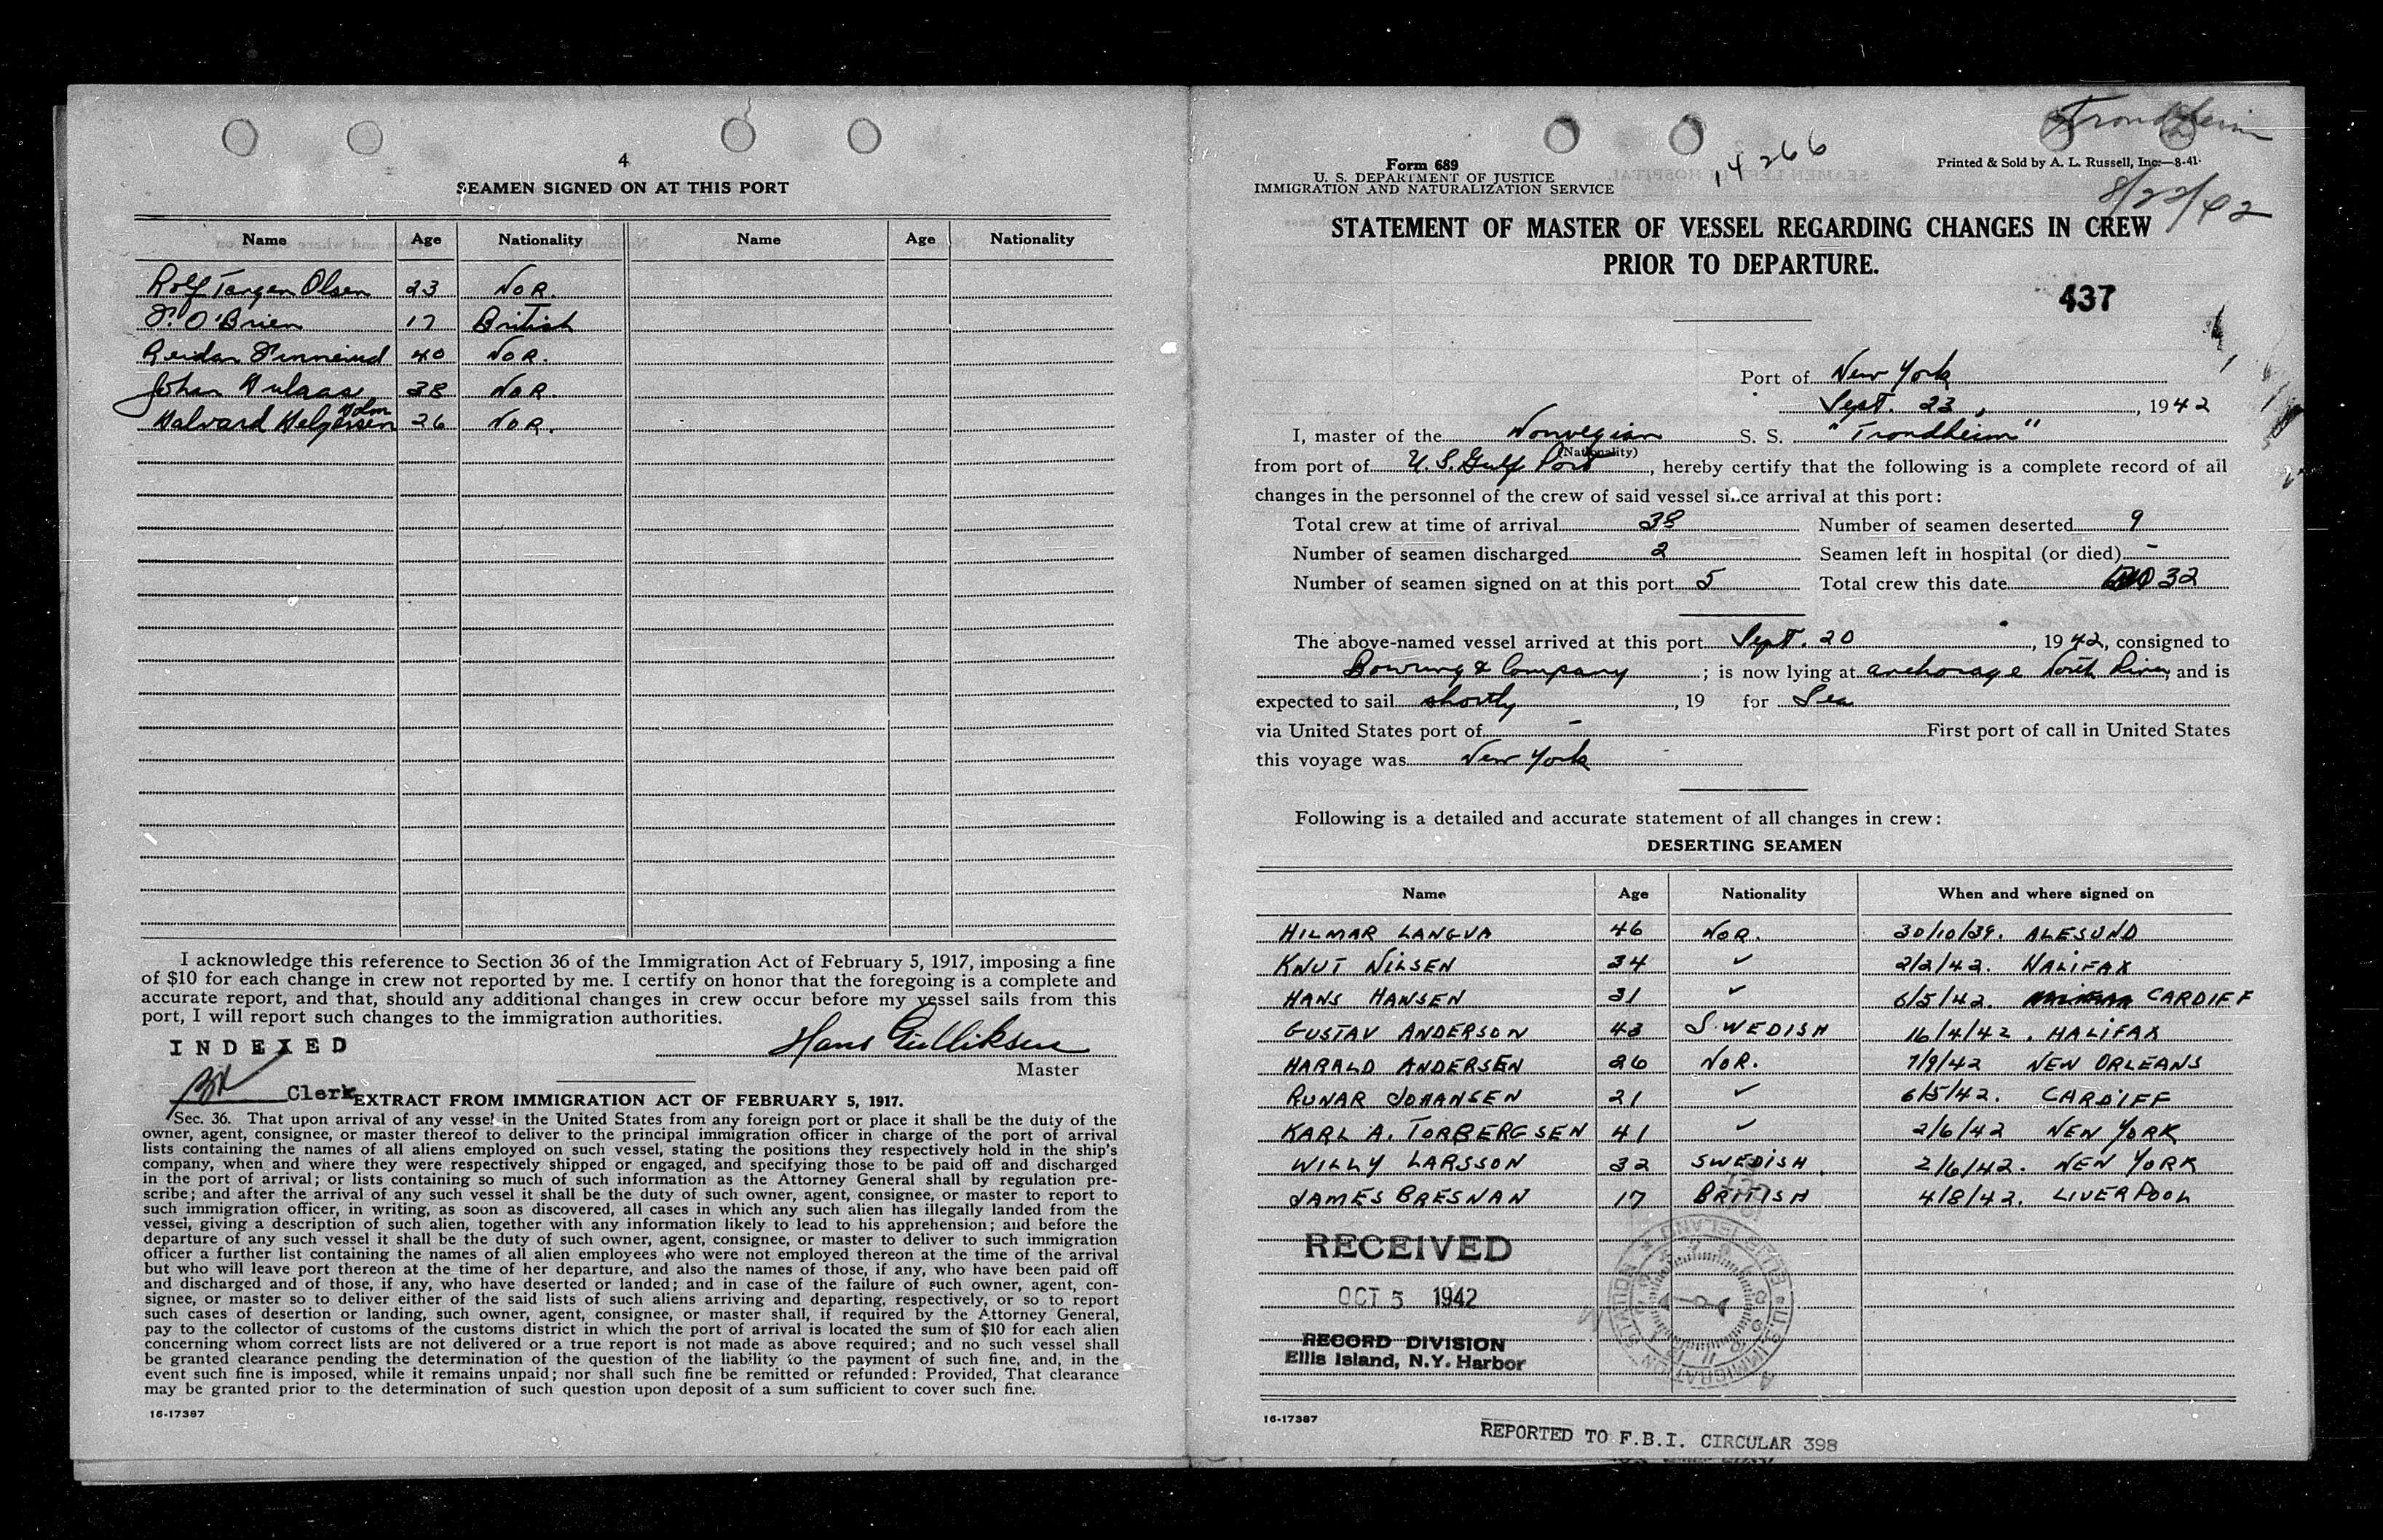 4
SEAMEN SIGNED ON AT THIS PORT
Name Age Nationality Name Age Nationality
Rolf Torgen Olsen 23 NOR.
O'Brien 17 British
Reidar 40 NOR.
Johan Aulaas 38 NOR.
Holm
Halvard Helgesen 26 NOR.
I acknowledge this reference to Section 36 of the Immigration Act of February 5, 1917, imposing a fine
of $10 for each change in crew not reported by me. I certify on honor that the foregoing is a complete and
accurate report, and that, should any additional changes in crew occur before my vessel sails from this
port, I will report such changes to the immigration authorities.
Hans Gulliksen
INDEXED
Master
Clerk
EXTRACT FROM IMMIGRATION ACT OF FEBRUARY 5, 1917.
Sec. 36. That upon arrival of any vessel in the United States from any foreign port or place it shall be the duty of the
owner, agent, consignee, or master thereof to deliver to the principal immigration officer in charge of the port of arrival
lists containing the names of all aliens employed on such vessel, stating the positions they respectively hold in the ship's
company, when and where they were respectively shipped or engaged, and specifying those to be paid off and discharged
in the port of arrival; or lists containing so much of such information as the Attorney General shall by regulation pre-
scribe; and after the arrival of any such vessel it shall be the duty of such owner, agent, consignee, or master to report to
such immigration officer, in writing, as soon as discovered, all cases in which any such alien has illegally landed from the
vessel, giving a description of such alien, together with any information likely to lead to his apprehension; and before the
departure of any such vessel it shall be the duty of such owner, agent, consignee, or master to deliver to such immigration
officer a further list containing the names of all alien employees who were not employed thereon at the time of the arrival
but who will leave port thereon at the time of her departure, and also the names of those, if any, who have been paid off
and discharged and of those, if any, who have deserted or landed; and in case of the failure of such owner, agent, con-
signee, or master so to deliver either of the said lists of such aliens arriving and departing, respectively, or so to report
such cases of desertion or landing, such owner, agent, consignee, or master shall, if required by the Attorney General,
pay to the collector of customs of the customs district in which the port of arrival is located the sum of $10 for each alien
concerning whom correct lists are not delivered or a true report is not made as above required; and no such vessel shall
be granted clearance pending the determination of the question of the liability to the payment of such fine, and, in the
event such fine is imposed, while it remains unpaid; nor shall such fine be remitted or refunded: Provided, That clearance
may be granted prior to the determination of such question upon deposit of a sum sufficient to cover such fine.
16-17387
Trondheim
Form 689
U. S. DEPARTMENT OF JUSTICE
IMMIGRATION AND NATURALIZATION SERVICE
14266
Printed & Sold by A. L. Russell, Inc.—8-41
8/22/42
STATEMENT OF MASTER OF VESSEL REGARDING CHANGES IN CREW
PRIOR TO DEPARTURE.
437
Port of New York
Sept. 23, , 1942
I, master of the Norwegian S. S. "Trondheim"
(Nationality)
from port of U.S. Gulf Port, hereby certify that the following is a complete record of all
changes in the personnel of the crew of said vessel since arrival at this port:
Total crew at time of arrival 38 Number of seamen deserted 9
Number of seamen discharged 2 Seamen left in hospital (or died) -
Number of seamen signed on at this port 5 Total crew this date 32
The above-named vessel arrived at this port Sept. 20, 1942, consigned to
Bowring & Company; is now lying at anchorage North River, and is
expected to sail shortly, 19 for Sea
via United States port of - First port of call in United States
this voyage was New York
Following is a detailed and accurate statement of all changes in crew:
DESERTING SEAMEN
Name Age Nationality When and where signed on
HILMAR LANGVA 46 NOR. 30/10/39. ALESUND
KNUT NILSEN 34 ✓ 2/2/42. HALIFAX
HANS HANSEN 31 ✓ 6/5/42. CARDIFF
GUSTAV ANDERSON 43 SWEDISH 16/4/42. HALIFAX
HARALD ANDERSEN 26 NOR. 7/9/42 NEW ORLEANS
RUNAR JOHANSEN 21 ✓ 6/5/42. CARDIFF
KARL A. TORBERGSEN 41 ✓ 2/6/42 NEW YORK
WILLY LARSSON 32 SWEDISH 2/6/42. NEW YORK
JAMES BRESNAN 17 BRITISH 4/8/42. LIVERPOOL
RECEIVED
OCT 5 1942
RECORD DIVISION
Ellis Island, N.Y. Harbor
U.S. IMMIGRATION STATION ELLIS ISLAND
16-17387
REPORTED TO F.B.I. CIRCULAR 398